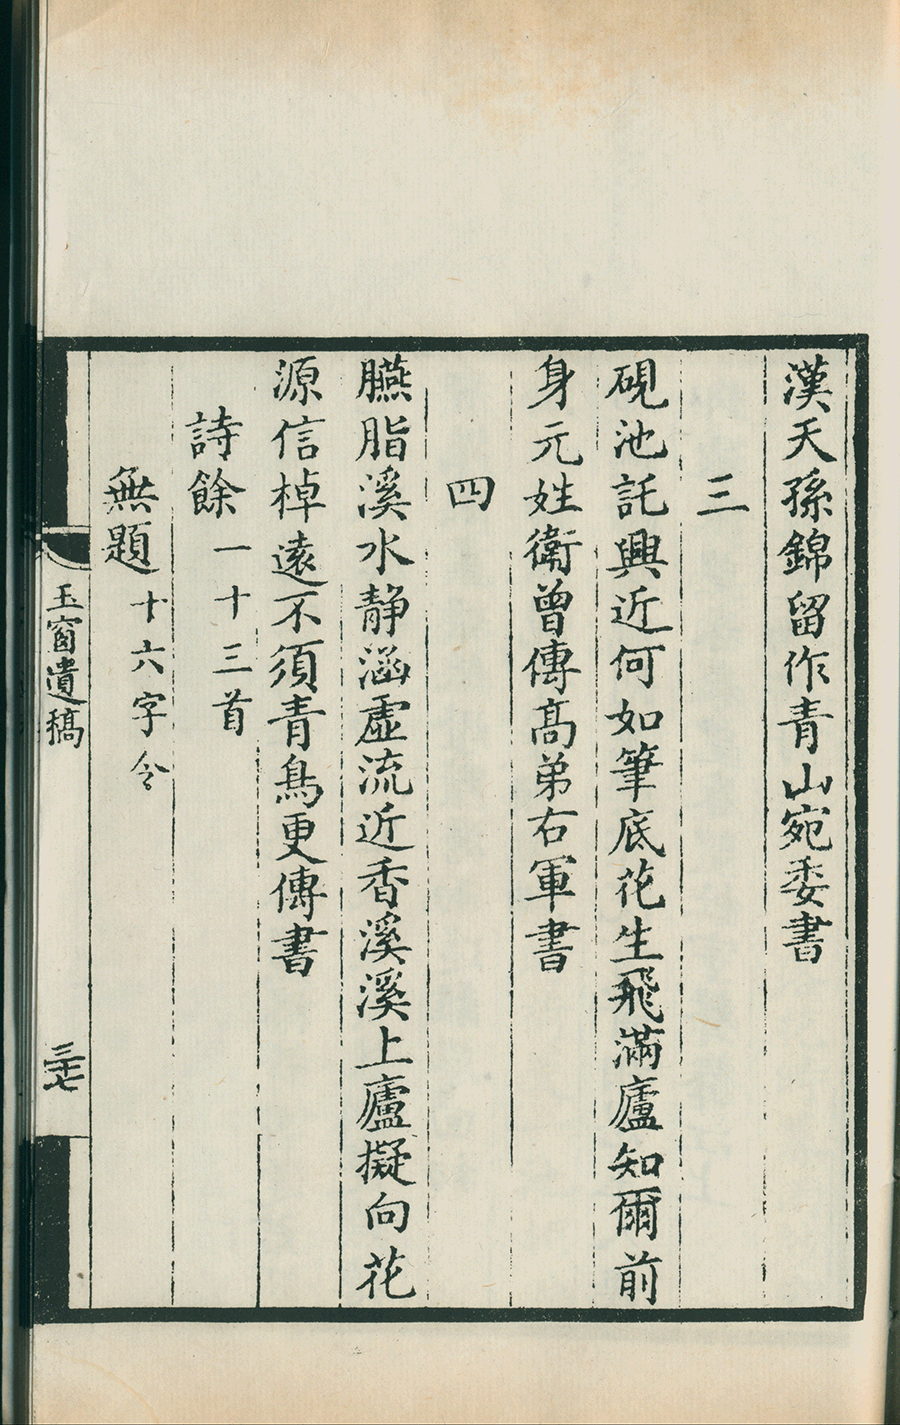 漢天孫錦留作青山宛委書
三
硯池託興近何如筆底花生飛滿廬知爾前
身元姓衛曾傳高弟右軍書
四
臙脂溪水静涵虛流近香溪溪上廬擬向花
源信棹遠不須青鳥更傳書
詩餘 一十三首
無題 十六字令
玉窗遺稿
三十七